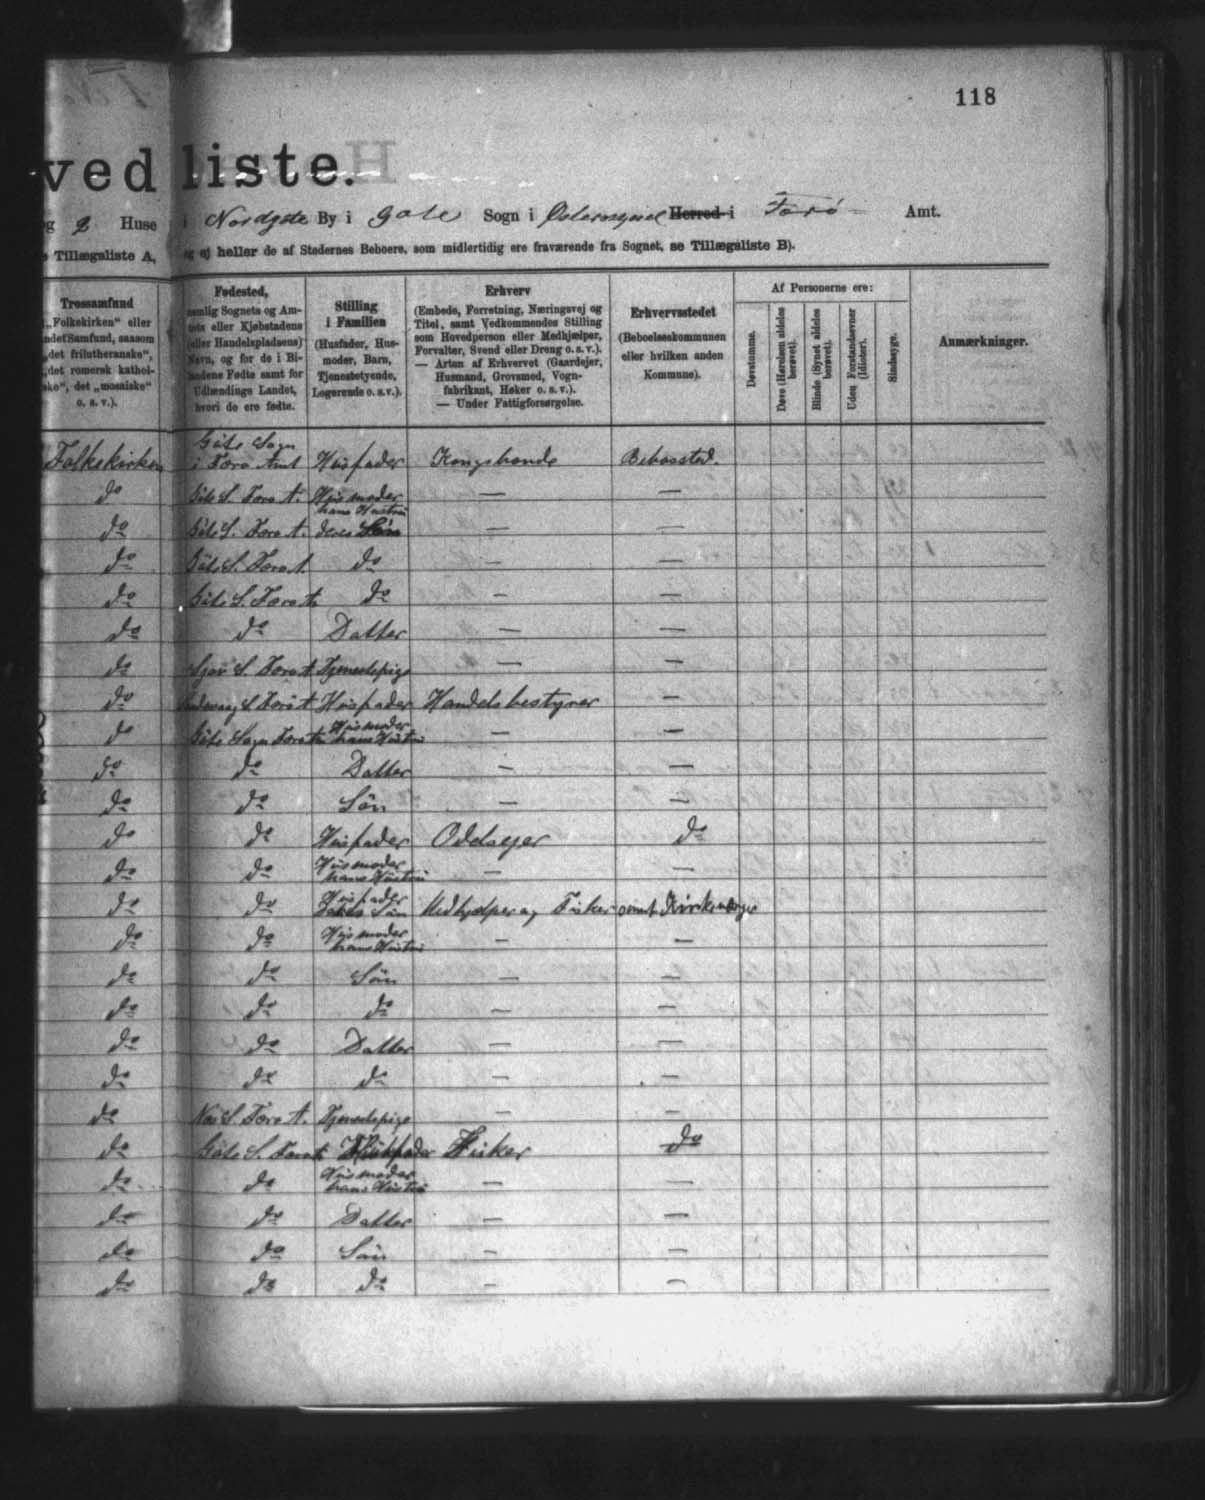 118
ved liste.
og 2 Huse i Nordgøte By i Gøte Sogn i Østerø Syssel Herred i Færø Amt.
Tillægsliste A, og ej heller de af Stedernes Beboere, som midlertidig ere fraværende fra Sognet, se Tillægsliste B).
Trossamfund
„Folkekirken“ eller
andet Samfund, saasom
„det frilutheranske“,
„det romersk kathol-
ske“, det „mosaiske“
o. s. v.).
Fødested,
nemlig Sognets og Am-
tets eller Kjøbstadens
(eller Handelspladsens)
Navn, og for de i Bi-
landene Fødte samt for
Udlændinge Landet,
hvori de ere fødte.
Stilling
i Familien
(Husfader, Hus-
moder, Barn,
Tjenestetyende,
Logerende o. s. v.).
Erhverv
(Embede, Forretning, Næringsvej og
Titel, samt Vedkommendes Stilling
som Hovedperson eller Medhjælper,
Forvalter, Svend eller Dreng o. s. v.).
— Arten af Erhvervet (Gaardejer,
Husmand, Grovsmed, Vogn-
fabrikant, Høker o. s. v.).
— Under Fattigforsørgelse.
Erhvervsstedet
(Beboelseskommunen
eller hvilken anden
Kommune).
Af Personerne ere:
Døvstumme.
Døve (Hørelsen aldeles berøvet).
Blinde (Synet aldeles berøvet).
Uden Forstandsevner (Idioter).
Sindssyge.
Anmærkninger.
Folkekirken Gøte Sogn i Færø Amt Husfader Kongsbonde Bebosted.
do Gøte S. Færø A. Husmoder hans Hustru — —
do Gøte S. Færø A. deres Søn — —
do Gøte S. Færø A. do — —
do Gøte S. Færø A. do — —
do do Datter — —
do S. Færø A Tjenestepige — —
do S. Færø A Husfader Handelsbestyrer —
do Gøte Sogn Færø A Husmoder hans Hustru — —
do do Datter — —
do do Søn — —
do do Husfader Odelsejer do
do do Husmoder hans Hustru — —
do do Husfader Søn Medhjælper og Fisker samt Kirkeværge
do do Husmoder hans Hustru — —
do do Søn — —
do do do — —
do do Datter — —
do do do — —
do S. Færø A. Tjenestepige — —
do Gøte S. Færø A Husfader Fisker do
do do Husmoder hans Hustru — —
do do Datter — —
do do Søn — —
do do do — —